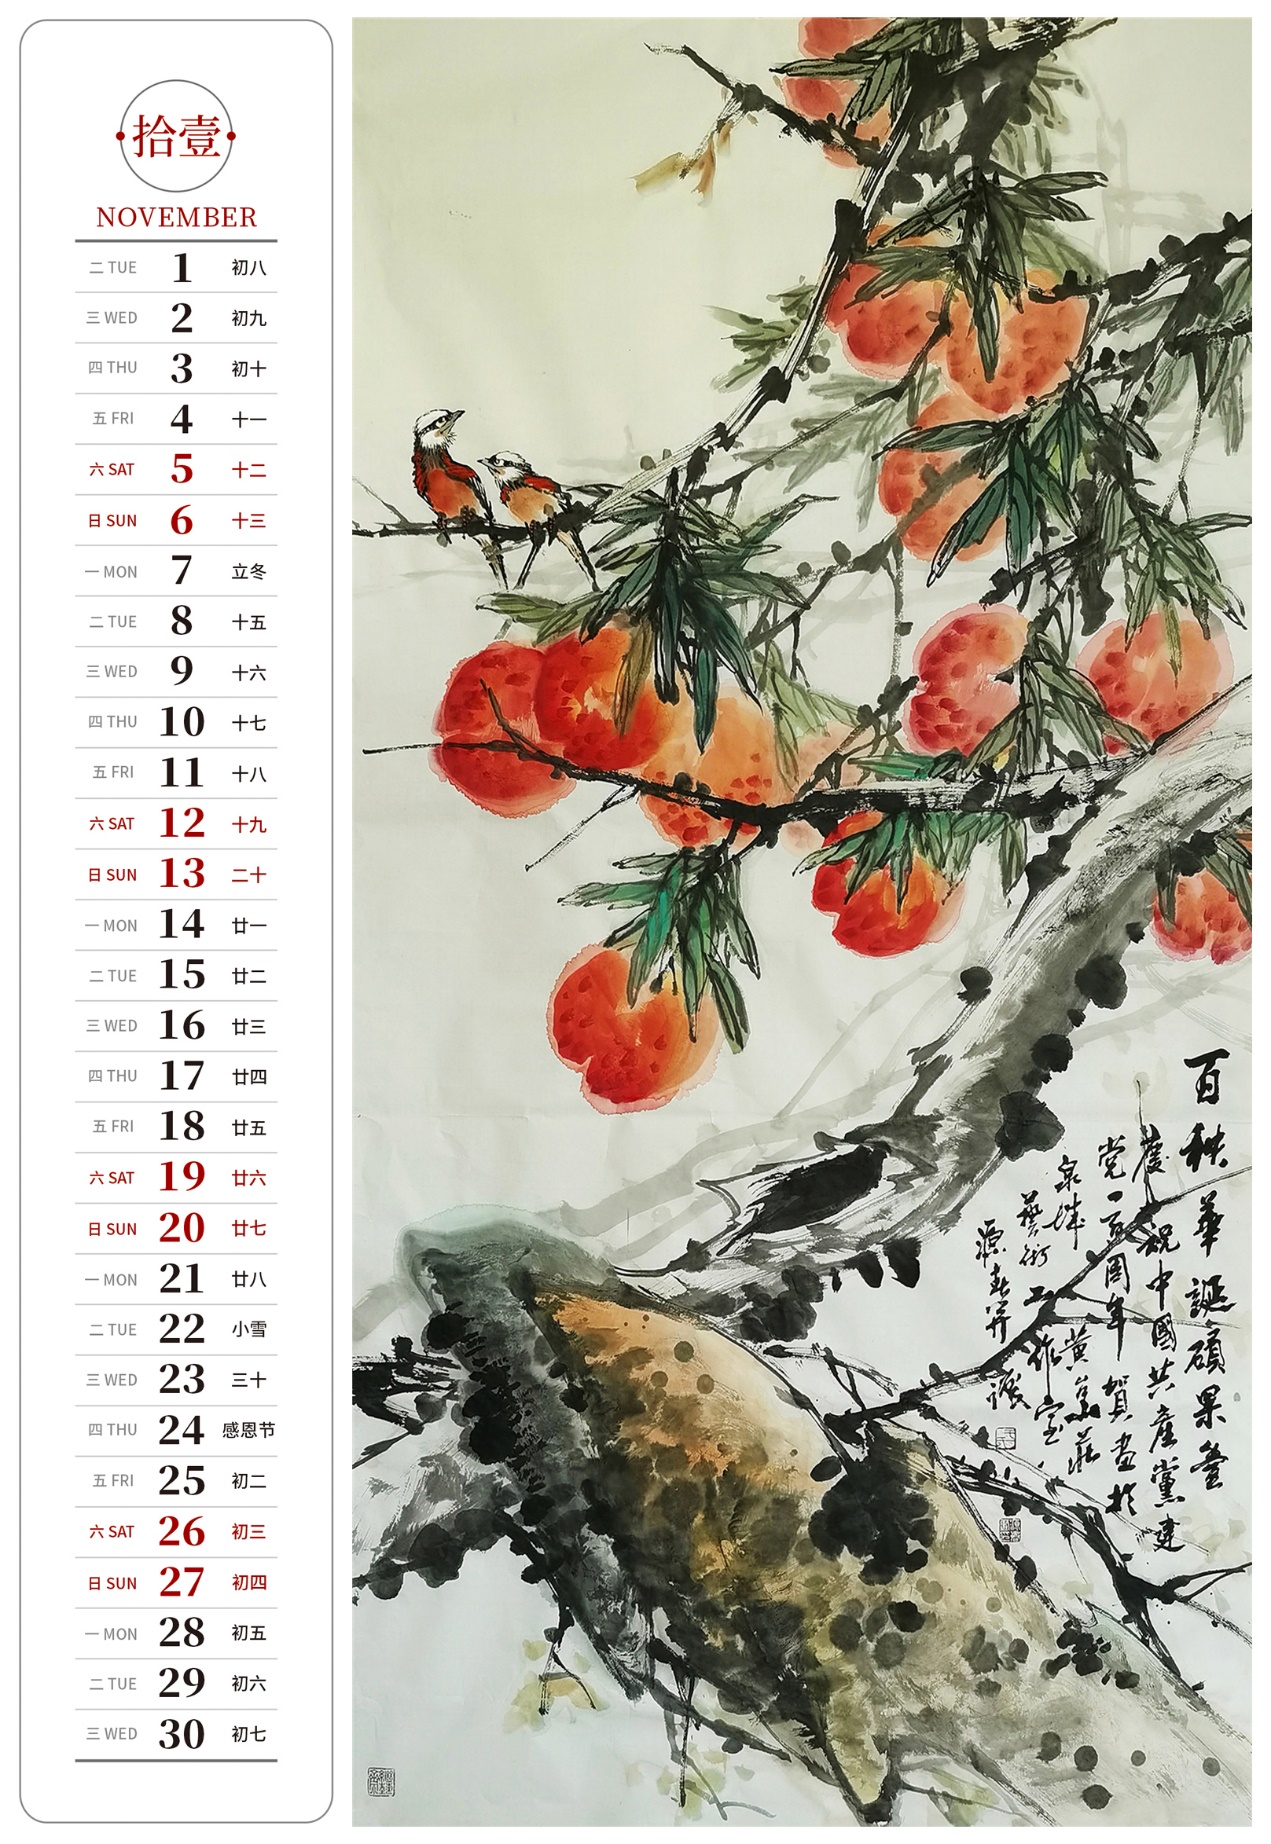 拾壹
NOVEMBER
二 TUE 1 初八
三 WED 2 初九
四 THU 3 初十
五 FRI 4 十一
六 SAT 5 十二
日 SUN 6 十三
一 MON 7 立冬
二 TUE 8 十五
三 WED 9 十六
四 THU 10 十七
五 FRI 11 十八
六 SAT 12 十九
日 SUN 13 二十
一 MON 14 廿一
二 TUE 15 廿二
三 WED 16 廿三
四 THU 17 廿四
五 FRI 18 廿五
六 SAT 19 廿六
日 SUN 20 廿七
一 MON 21 廿八
二 TUE 22 小雪
三 WED 23 三十
四 THU 24 感恩节
五 FRI 25 初二
六 SAT 26 初三
日 SUN 27 初四
一 MON 28 初五
二 TUE 29 初六
三 WED 30 初七
百秩華誕碩果豐
慶祝中國共產黨建
党一百周年賀畫於
泉城黄
藝術工作室
源